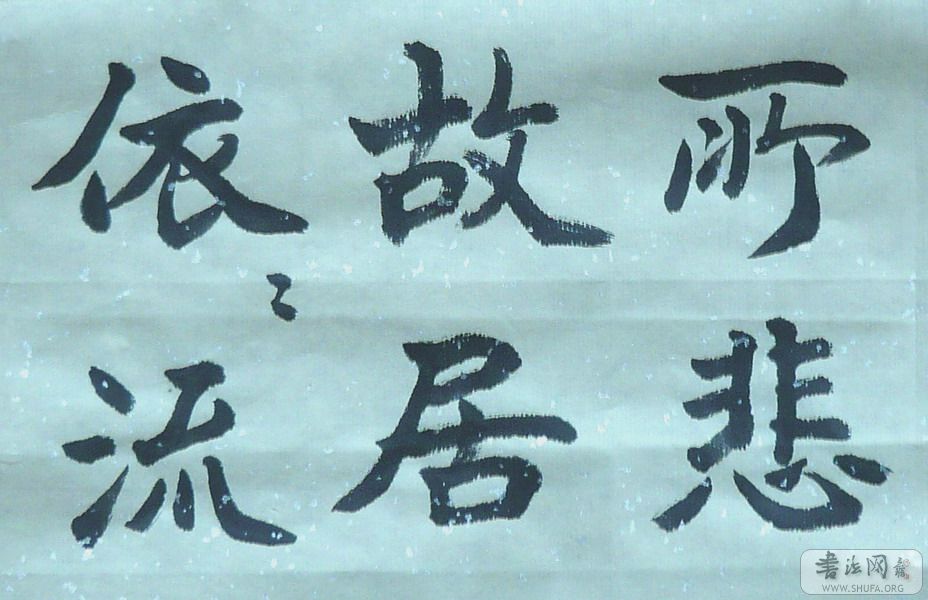 所悲
故居
依〻流
書法网
WWW.SHUFA.ORG